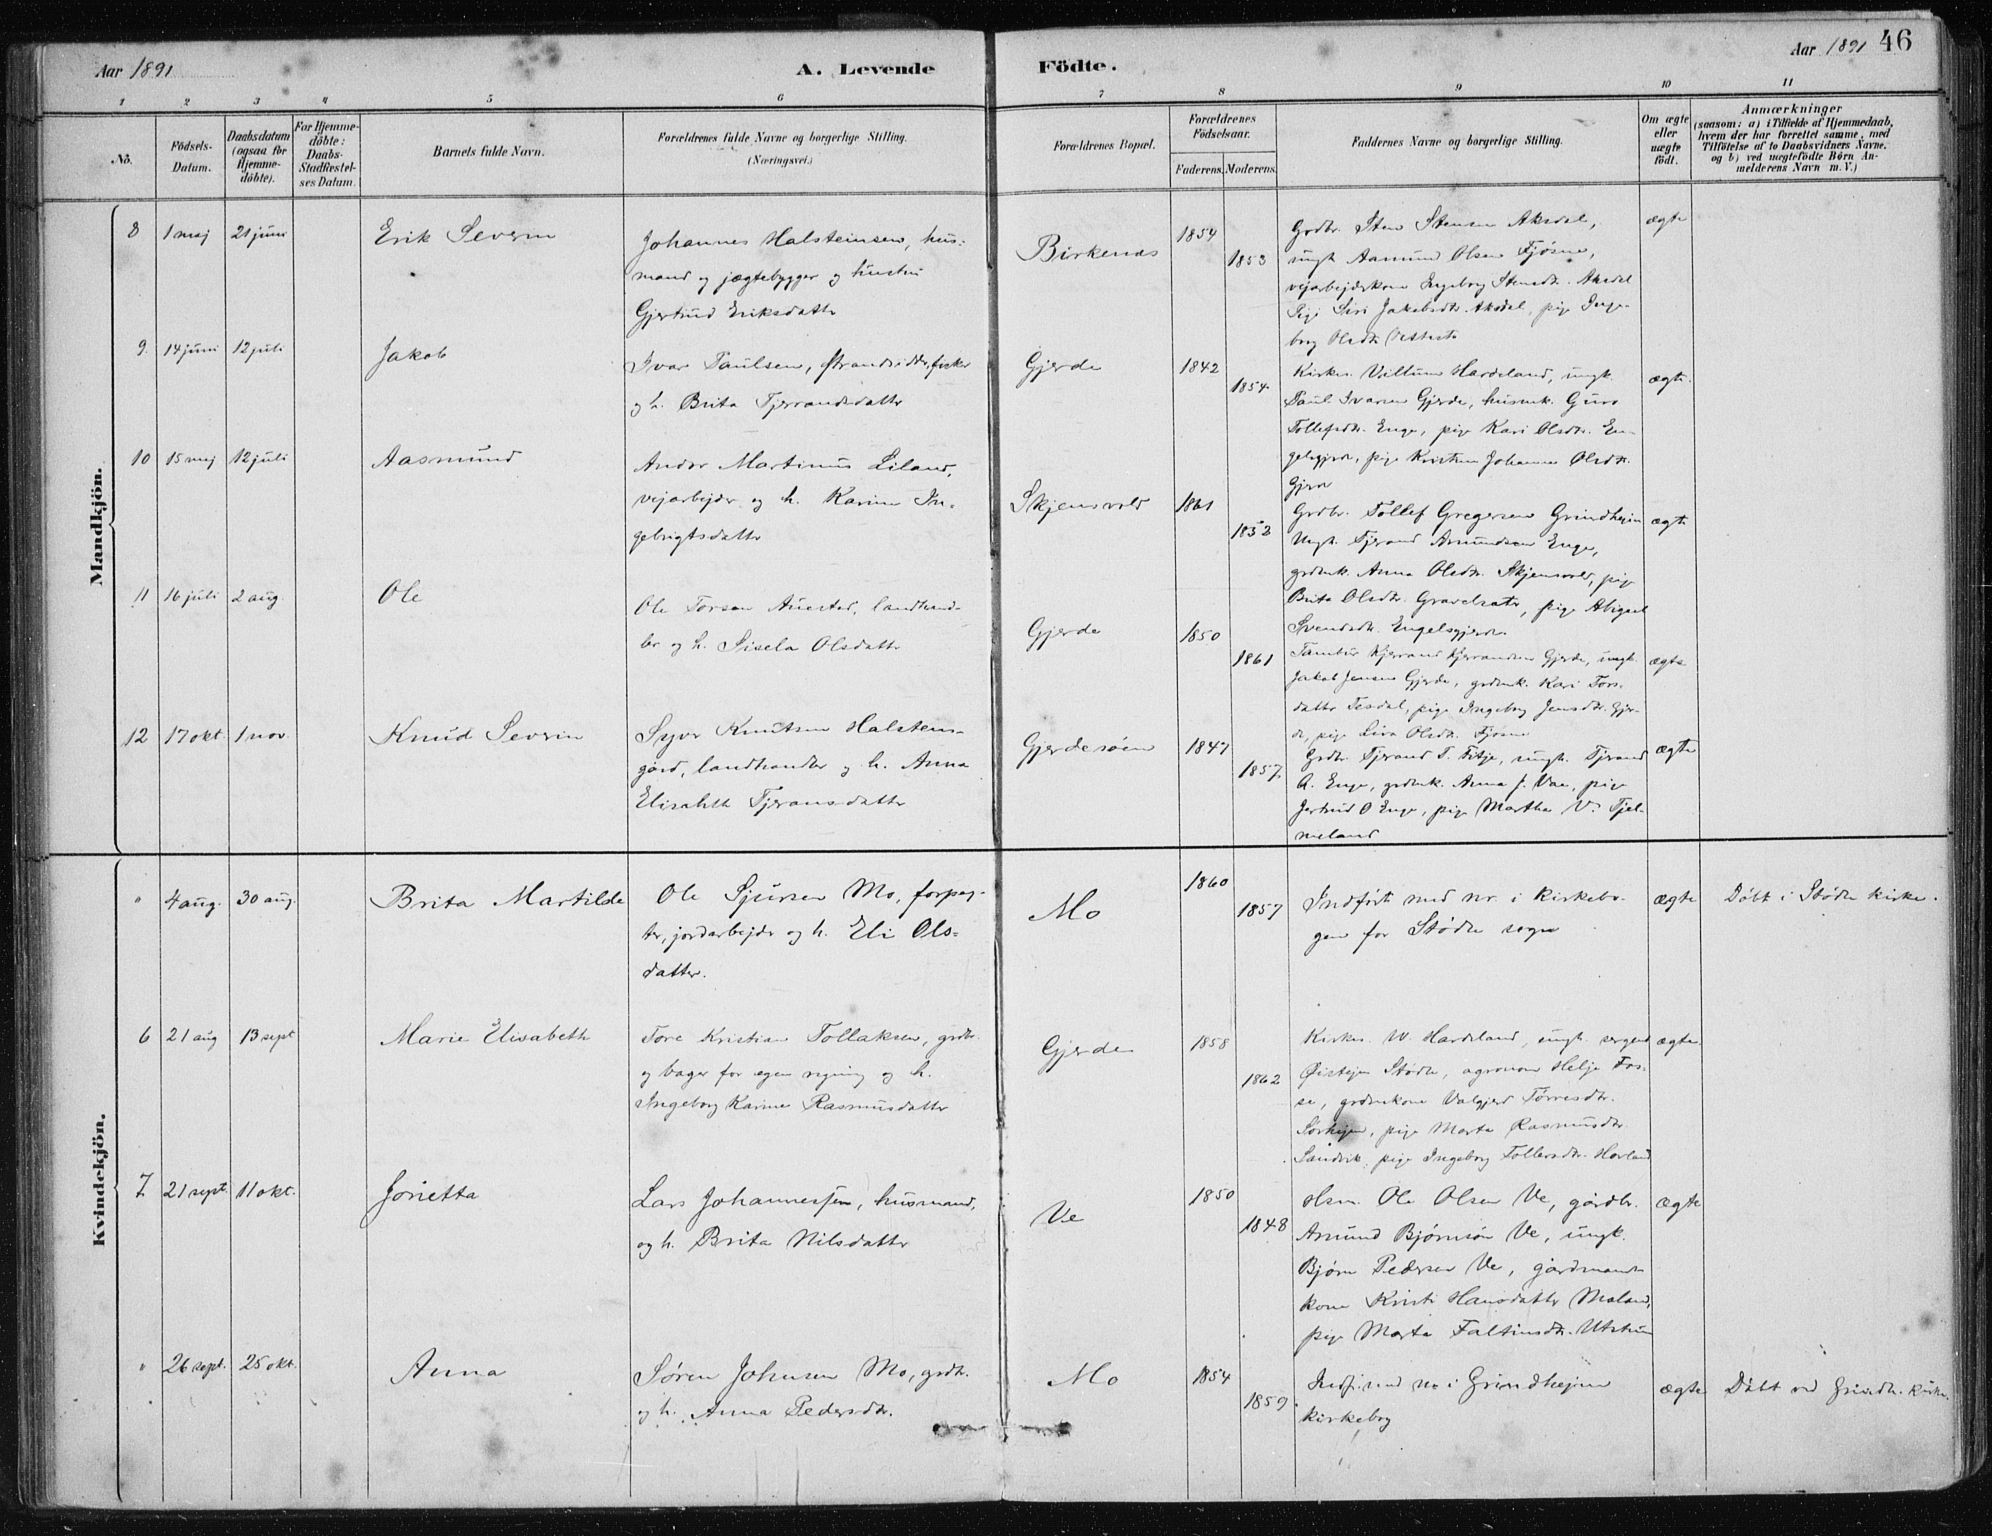 Aar 1891
A. Levende
Födte.
Aar 1891 46
1 2 3 4 5 6 7 8 9 10 11
No.
Födsels-
Datum.
Daabsdatum
(ogsaa for
Hjemme-
döbte).
For Hjemme-
döbte:
Daabs-
Stadfæstel-
ses Datum.
Barnets fulde Navn.
Forældrenes fulde Navne og borgerlige Stilling.
(Næringsvei.)
Forældrenes Bopæl.
Forældrenes
Födselsaar.
Faderens. Moderens.
Faddernes Navne og borgerlige Stilling.
Om ægte
eller
uægte
födt.
Anmærkninger
(saasom: a) i Tilfælde af Hjemmedaab,
hvem der har forrettet samme, med
Tilföielse af to Daabsvidners Navne,
og b) ved uægtefödte Börn An-
melderens Navn m. V.)
Mandkjön.
8 1 maj 21 juni
Erik Severin
Johannes Halsteinsen, hus-
mand og jægtebygger og hustru
Gjertrud Eriksdatter
Birkenes
1854
1853
Grdbr. Sten Stensen Aksdal,
ungk. Aamund Olsen Fjøsne,
vejarbejderkone Ingeborg Stensdtr. Aksdal
Pige Siri Jakobsdtr. Aksdal, pige Inge-
borg Olsdtr.
ægte
9. 14 juni 12 juli
Jakob
Ivar Paulsen, Strandsidder, fisker
og h. Brita Tjerrandsdatter
Gjerde
1842
1854
Kirkes. Villum Hardeland, ungk.
Paul Ivarsen Gjerde, husmk. Guro
Tollefsdtr. Enge, pige Kari Olsdtr. En-
gelsgjerde, pige Kristine Johanne Olsdtr.
Gjerde
ægte.
10 15 maj 12 juli
Aasmund
Andor Martinus Liland,
vejarbejder og h. Karine In-
gebrigtsdatter
Skjensvold
1861
1852
Grdbr. Tollef Gregersen Grindhejm
Ungk. Tjerand Amundsen Enge,
grdmk. Anna Olsdtr. Skjensvold, pige
Brita Olsdtr. Gravelsæter, pige Abigael
Svendsdtr. Engelsgjerde
ægte
11 16 juli 2 aug.
Ole
Ole Torsen Auestad, landhand-
ler og h. Sisela Olsdatter
Gjerde
1850
1861
Tambur Kjerrand Kjerrandsen Gjerde, ungk.
Jakob Jensen Gjerde, grdmk. Kari Tors-
datter Tesdal, pige Ingeborg Jensdtr. Gjer-
de, pige Liva Olsdtr. Fjøsne
ægte
12 17 okt. 1 nov.
Knud Severin
Syver Knutsen Halstens-
gård, landhandler og h. Anna
Elisabeth Tjeransdatter
Gjerdesøen
1847
1857.
Grdbr. Tjerand T. Fitje, ungk. Tjerand
A. Enge, grdmk. Anna J. Vae, pige
Jertrud O Enge, pige Martha V. Tjel-
meland
ægte
Kvindekjön.
" 4 aug. 30 aug.
Brita Martilde
Ole Sjursen Mo, forpag-
ter, jordarbejder og h. Eli Ols-
datter.
Mo
1860
1857
Indført med nr. i Kirkebo-
gen for Stødle sogn
ægte
Døbt i Stødle kirke.
6 21 aug 13 sept
Marie Elisabeth
Tore Kristian Tollaksen, grdbr.
og bager for egen regning og h.
Ingeborg Karine Rasmusdatter
Gjerde
1858
1862
Kirkes. W. Hardeland, ungk. sergeant
Øistejn Stødle, agronom Helje Fos-
se, grdmkone Valgjerd Tørresdtr.
Sørhejm, pige Marta Rasmusdtr.
Sandvik, pige Ingeborg Hovland
ægte.
7 21 sept. 11 okt.
Jorietta
Lars Johannessen, husmand,
og h. Brita Nilsdatter
Ve
1850
1848
Hsm. Ole Olsen Ve, gårdbr.
Amund Bjørnsøn Ve, ungk.
Bjørn Pedersen Ve, gårdmands-
kone Kristi Hansdatter Moland,
pige Marta Faltinsdtr. Utstrum
ægte
" 26 sept. 25 okt.
Anna
Søren Johnsen Mo, grdb.
og h. Anna Pedersdtr.
Mo
1854
1859.
Indf. med no i Grindhejm
kirkebog
ægte
Døbt ved Grindh. kirke.